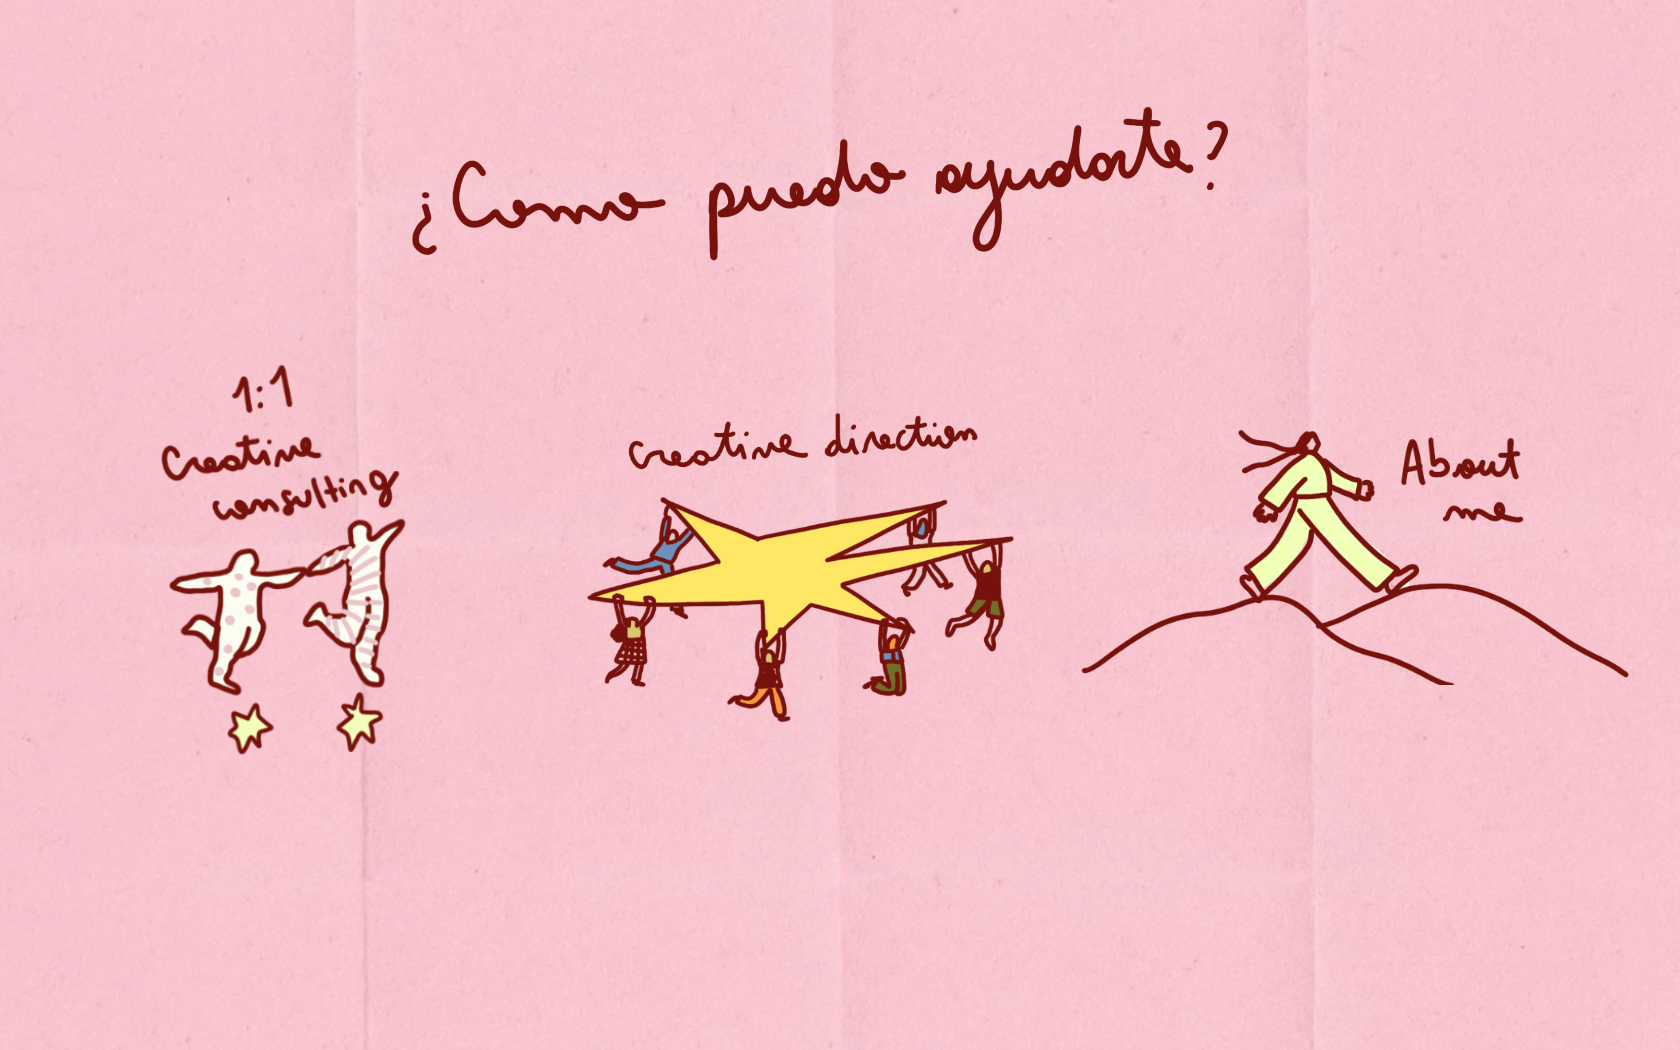 ¿Como puedo ayudarte?
1:1
Creative
consulting
creative direction
About
me